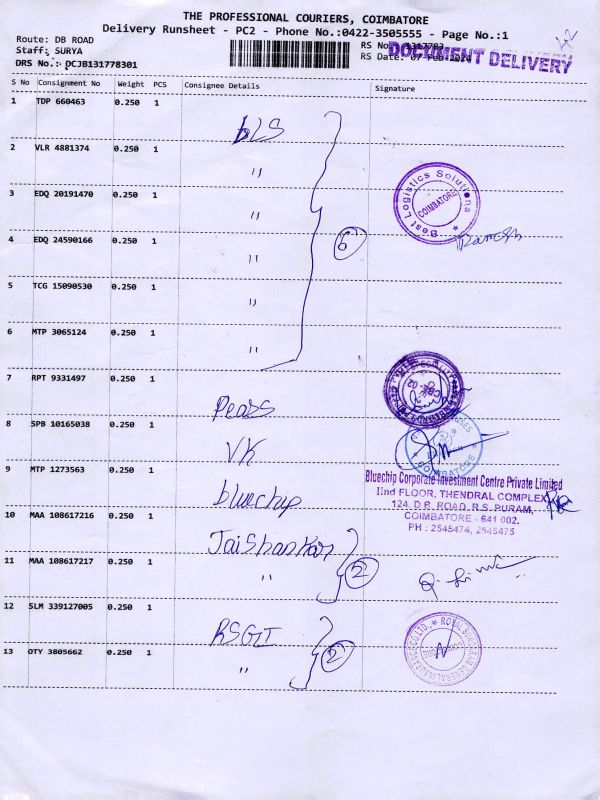 THE PROFESSIONAL COURIERS, COIMBATORE
Delivery Runsheet - PC2 - Phone No.:0422-3505555 - Page No.:1
Route: DB ROAD
Staff: SURYA
DRS No.: PCJB131778301
RS No.: 1317783
RS Date: 07-Feb-2024
DOCUMENT DELIVERY
S No Consignment No Weight PCS Consignee Details Signature
1 TDP 660463 0.250 1 BLS
2 VLR 4881374 0.250 1 "
3 EDQ 20191470 0.250 1 "
Best Logistics Solutions COIMBATORE
4 EDQ 24590166 0.250 1 " 6 Ramesh
5 TCG 15090530 0.250 1 "
6 MTP 3065124 0.250 1 "
7 RPT 9331497 0.250 1 Pears
CBE-02
8 SPB 10165038 0.250 1 VK
COIMBATORE
9 MTP 1273563 0.250 1 bluechip
Bluechip Corporate Investment Centre Private Limited
IInd FLOOR, THENDRAL COMPLEX,
124, D.B. ROAD, R.S. PURAM,
COIMBATORE - 641 002.
PH : 2545474, 2545475
10 MAA 108617216 0.250 1 Jaishankar
11 MAA 108617217 0.250 1 " 2
12 SLM 339127005 0.250 1 RSGI
13 OTY 3805662 0.250 1 " 2
ROYAL SUNDARAM GENERAL INSURANCE CO. LTD.